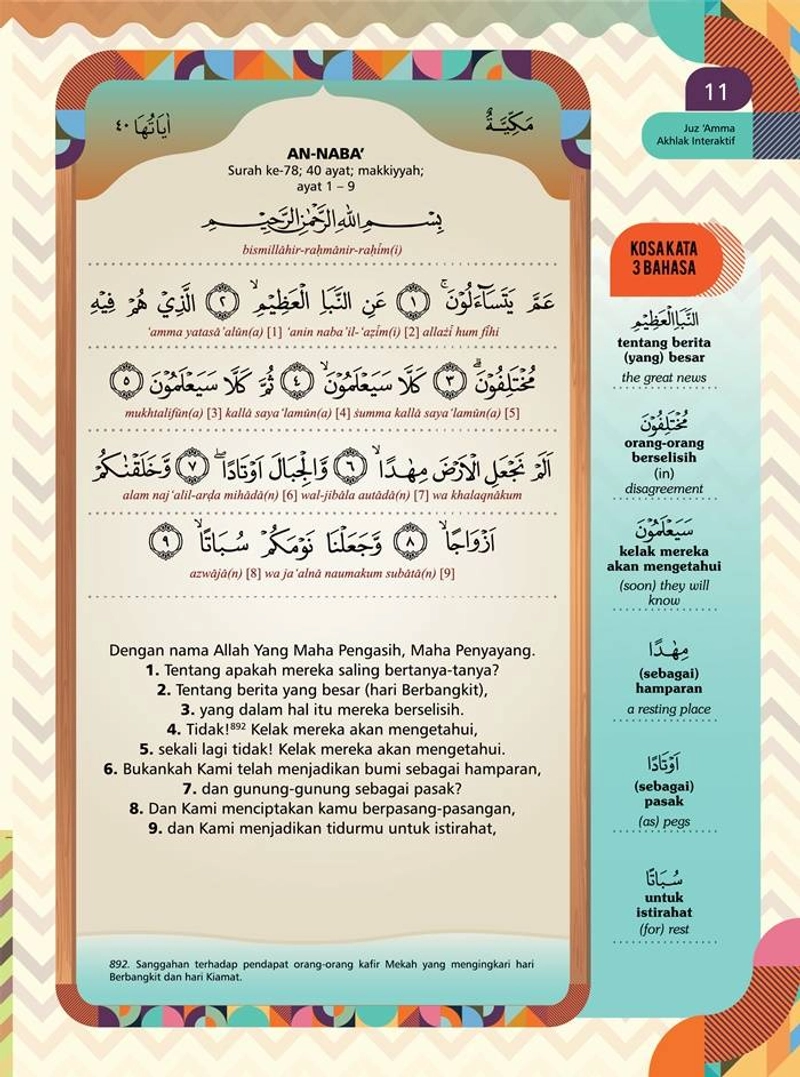 11
Juz ‘Amma
Akhlak Interaktif
اٰيَاتُهَا ٤٠
مَكِّيَّةٌ
AN-NABA’
Surah ke-78; 40 ayat; makkiyyah;
ayat 1 – 9
بِسْمِ اللّٰهِ الرَّحْمٰنِ الرَّحِيْمِ
bismillāhir-raḥmānir-raḥīm(i)
عَمَّ يَتَسَاۤءَلُوْنَۚ ١ عَنِ النَّبَاِ الْعَظِيْمِۙ ٢ الَّذِيْ هُمْ فِيْهِ
‘amma yatasā’alūn(a) [1] ‘anin naba’il-‘aẓīm(i) [2] allażī hum fīhi
مُخْتَلِفُوْنَۗ ٣ كَلَّا سَيَعْلَمُوْنَۙ ٤ ثُمَّ كَلَّا سَيَعْلَمُوْنَ ٥
mukhtalifūn(a) [3] kallā saya‘lamūn(a) [4] ṡumma kallā saya‘lamūn(a) [5]
اَلَمْ نَجْعَلِ الْاَرْضَ مِهٰدًاۙ ٦ وَّالْجِبَالَ اَوْتَادًاۖ ٧ وَّخَلَقْنٰكُمْ
alam naj‘alil-arḍa mihādā(n) [6] wal-jibāla autādā(n) [7] wa khalaqnākum
اَزْوَاجًاۙ ٨ وَّجَعَلْنَا نَوْمَكُمْ سُبَاتًاۙ ٩
azwājā(n) [8] wa ja‘alnā naumakum subātā(n) [9]
Dengan nama Allah Yang Maha Pengasih, Maha Penyayang.
1. Tentang apakah mereka saling bertanya-tanya?
2. Tentang berita yang besar (hari Berbangkit),
3. yang dalam hal itu mereka berselisih.
4. Tidak!⁸⁹² Kelak mereka akan mengetahui,
5. sekali lagi tidak! Kelak mereka akan mengetahui.
6. Bukankah Kami telah menjadikan bumi sebagai hamparan,
7. dan gunung-gunung sebagai pasak?
8. Dan Kami menciptakan kamu berpasang-pasangan,
9. dan Kami menjadikan tidurmu untuk istirahat,
892. Sanggahan terhadap pendapat orang-orang kafir Mekah yang mengingkari hari
Berbangkit dan hari Kiamat.
KOSAKATA
3 BAHASA
النَّبَاِالْعَظِيْمِ
tentang berita
(yang) besar
the great news
مُخْتَلِفُوْنَ
orang-orang
berselisih
(in)
disagreement
سَيَعْلَمُوْنَ
kelak mereka
akan mengetahui
(soon) they will
know
مِهٰدًا
(sebagai)
hamparan
a resting place
اَوْتَادًا
(sebagai)
pasak
(as) pegs
سُبَاتًا
untuk
istirahat
(for) rest